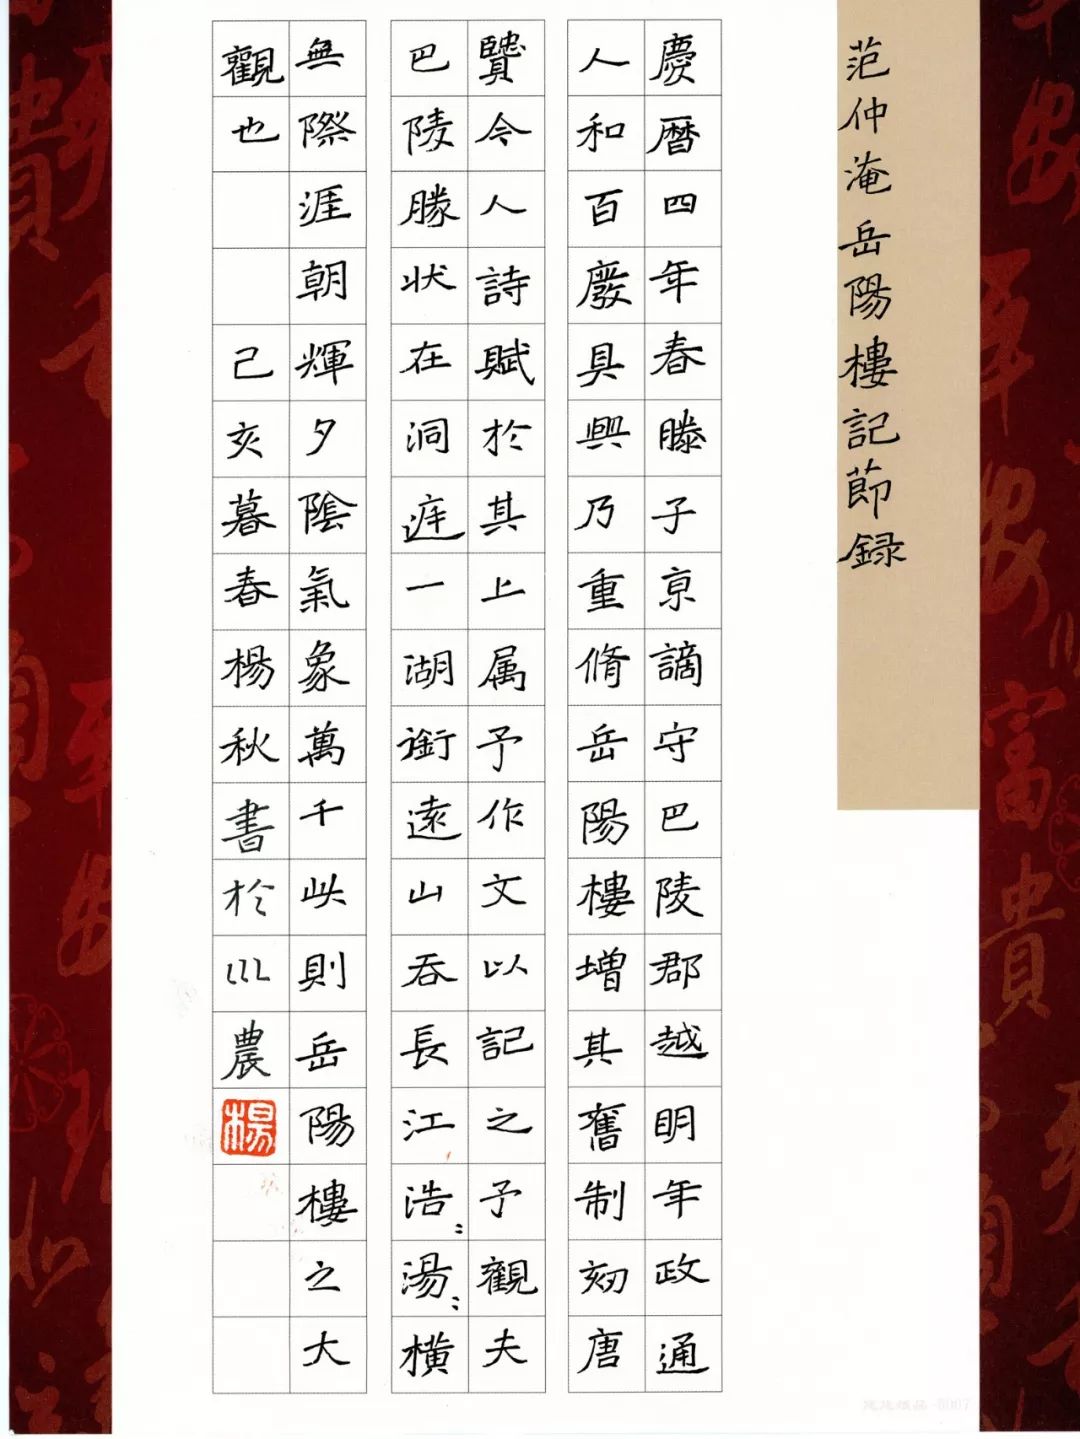 范仲淹岳陽樓記節録
慶暦四年春滕子亰謫守巴陵郡越明年政通
人和百廢具興乃重脩岳陽樓增其舊制刻唐
賢今人詩賦於其上属予作文以記之予觀夫
巴陵勝状在洞庭一湖銜遠山吞長江浩〻湯〻橫
無際涯朝輝夕陰氣象萬千此則岳陽樓之大
觀也 己亥暮春楊秋書於川農
楊